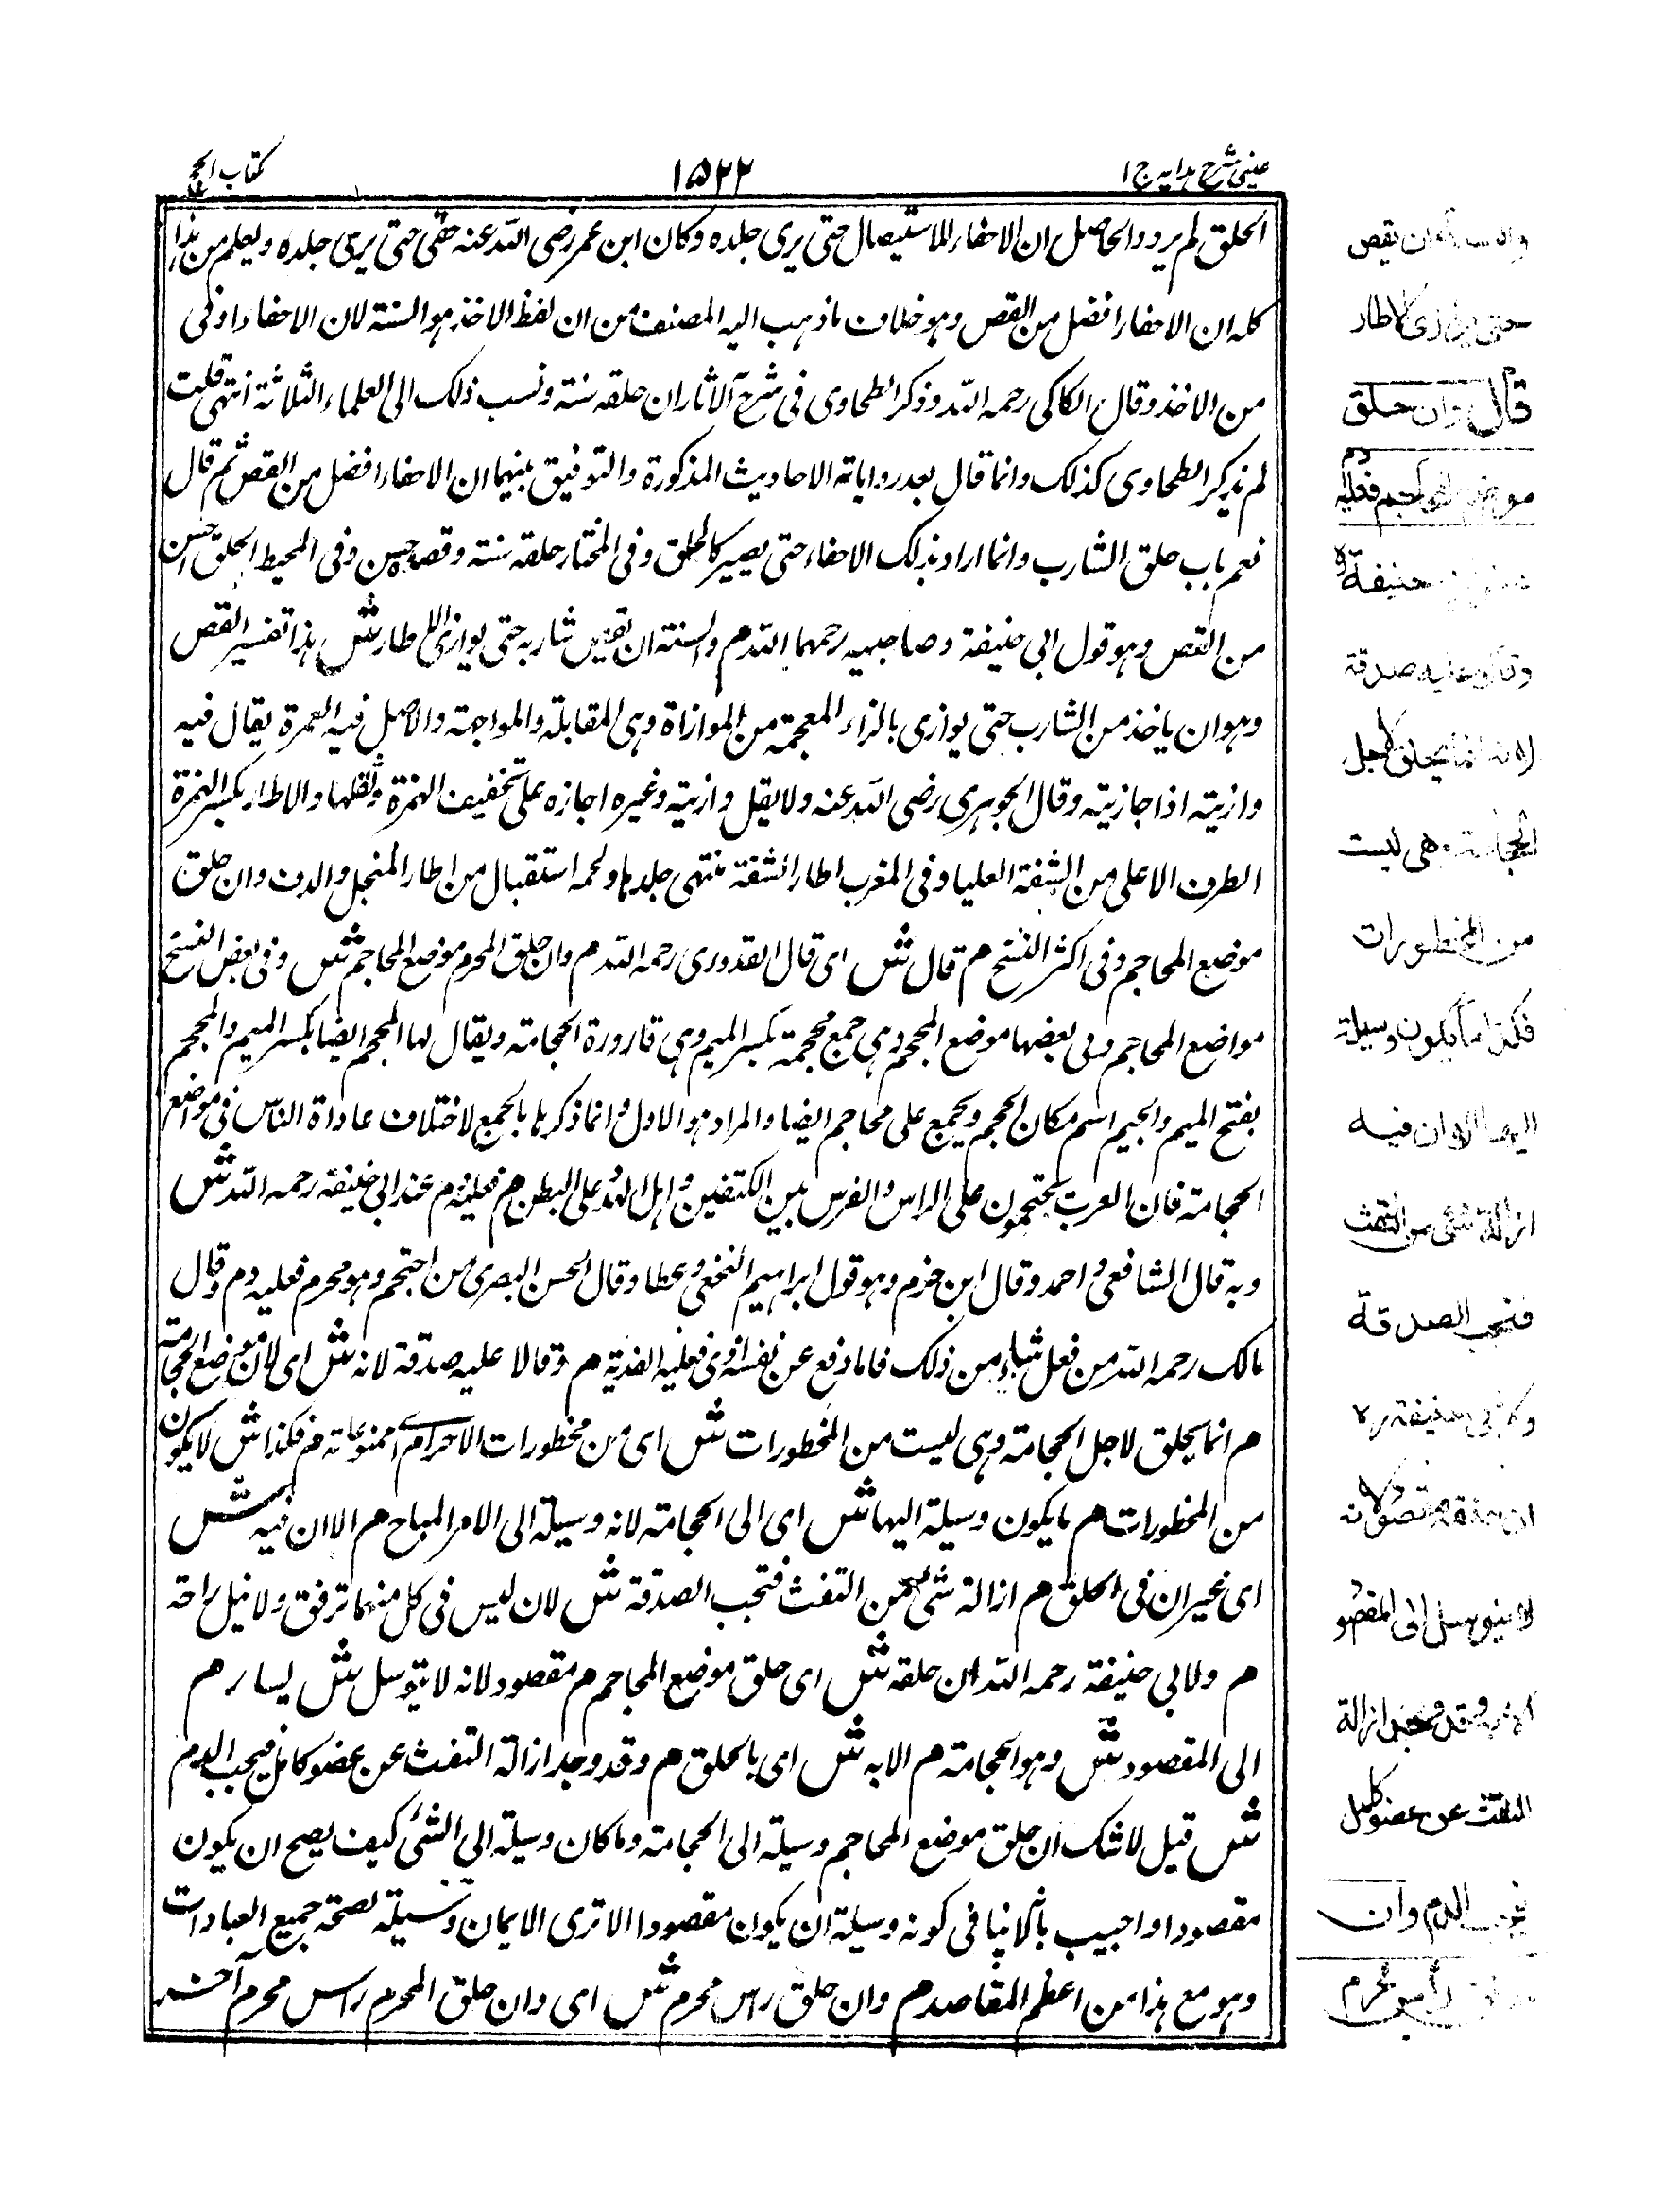 عینی شرح ہدایہ ج ۱
۱۵۲۲
کتاب الحج
الحلق لم یرد والحاصل ان الاحفاء للاستیصال حتی یری جلدہ وکان ابن عمر رضی اللہ عنہ حفی حتی یری جلدہ ویعلم من ہذا
کلہ ان الاحفاء افضل من القص وہو خلاف ما ذہب الیہ المصنف من ان لفظ الاخذ ہو السنۃ لان الاحفاء اوفی
من الاخذ وقال الکاکی رحمہ اللہ وذکر الطحاوی فی شرح الآثار ان حلقہ سنۃ ونسب ذلک الی العلماء الثلاثۃ انتہی قلت
لم یذکر الطحاوی کذلک وانما قال بعد روایاتہ الاحادیث المذکورۃ والتوفیق بینہما ان الاحفاء افضل من القص ثم قال
نعم باب حلق الشارب وانما اراد بذلک الاحفاء حتی یصیر کالحلق وفی المختار حلقہ سنۃ وقصہ حسن وفی المحیط الحلق احسن
من القص وہو قول ابی حنیفۃ وصاحبیہ رحمہما اللہ م والسنۃ ان یقص شاربہ حتی یوازی الاطار ش ہذا تفسیر القص
وہو ان یاخذ من الشارب حتی یوازی بالزاء المعجمۃ من الموازاۃ وہی المقابلۃ والمواجہۃ والاصل فیہ الہمزۃ یقال فیہ
وازیتہ اذا حاذیتہ وقال الجوہری رضی اللہ عنہ ولا یقل وازیتہ وغیرہ اجازہ علی تخفیف الہمزۃ وثقلہا والاطار بکسر الہمزۃ
الطرف الاعلی من الشفۃ العلیا وفی المغرب اطار الشفۃ منتہی جلدہا ولحمہ استقبال من اطار المنجل والدف وان حلق
موضع المحاجم وفی اکثر النسخ م قال ش ای قال القدوری رحمہ اللہ م وان حلق المحرم موضع المحاجم ش وفی بعض النسخ
مواضع المحاجم وفی بعضہا موضع المحجم وہی جمع محجمۃ بکسر المیم وہی قارورۃ الحجامۃ ویقال لہا المحجم ایضا بکسر المیم والمحجم
بفتح المیم والجیم اسم مکان الحجم ویجمع علی محاجم ایضا والمراد ہو الاول وانما ذکرہا بالجمع لاختلاف عاداۃ الناس فی مواضع
الحجامۃ فان العرب یحتجمون علی الراس والفرس بین الکتفین واہل الہند علی البطن م فعلیہ دم عند ابی حنیفۃ رحمہ اللہ ش
وبہ قال الشافعی واحمد وقال ابن حزم وہو قول ابراہیم النخعی وعطا وقال الحسن البصری من احتجم وہو محرم فعلیہ دم وقال
مالک رحمہ اللہ من فعل شیاء من ذلک فاماذفع عن نفسہ اذی فعلیہ الفدیۃ م وقالا علیہ صدقۃ لانہ ش ای لان موضع الحجامۃ
م انما یحلق لاجل الحجامۃ وہی لیست من المحظورات ش ای من محظورات الاحرام ای ممنوعاتہ م فکذا ش لا یکون
من المحظورات م ما یکون وسیلۃ الیہا ش ای الی الحجامۃ لانہ وسیلۃ الی الامر المباح م الا ان فیہ ش
ای غیر ان فی الحلق م ازالۃ شئ من التفث فتجب الصدقۃ ش لان لیس فی کل منہما ترفق ولا نیل راحۃ
م ولابی حنیفۃ رحمہ اللہ ان حلقہ ش ای حلق موضع المحاجم م مقصود لانہ لا یتوسل ش لیسا ر م
الی المقصود ش وہو الحجامۃ م الا بہ ش ای بالحلق م وقد وجد ازالۃ التفث عن عضو کامل فیجب الدم
ش قیل لا شک ان حلق موضع المحاجم وسیلۃ الی الحجامۃ وما کان وسیلۃ الی الشئ کیف یصح ان یکون
مقصودا واجیب بانہ لا ینافی کونہ وسیلۃ ان یکون مقصودا الا تری الایمان وسیلۃ لصحۃ جمیع العبادات
وہو مع ہذا من اعظم المقاصد م وان حلق راس محرم ش ای وان حلق المحرم راس محرم آخر
ان یقص
حتی یوازی الاطار
قال وان حلق
موضع المحاجم فعلیہ دم
حنیفۃ رہ
وقالا علیہ صدقۃ
لانہ انما یحلق لاجل
الحجامۃ وھی لیست
من المحظورات
فکذا ما یکون وسیلۃ
الیہا الا ان فیہ
ازالۃ شئ من التفث
فتجب الصدقۃ
ولابی حنیفۃ رہ
ان حلقہ مقصود لانہ
لا یتوسل الی المقصود
الا بہ وقد وجد ازالۃ
التفث عن عضو کامل
فیجب الدم وان
حلق رأس محرم